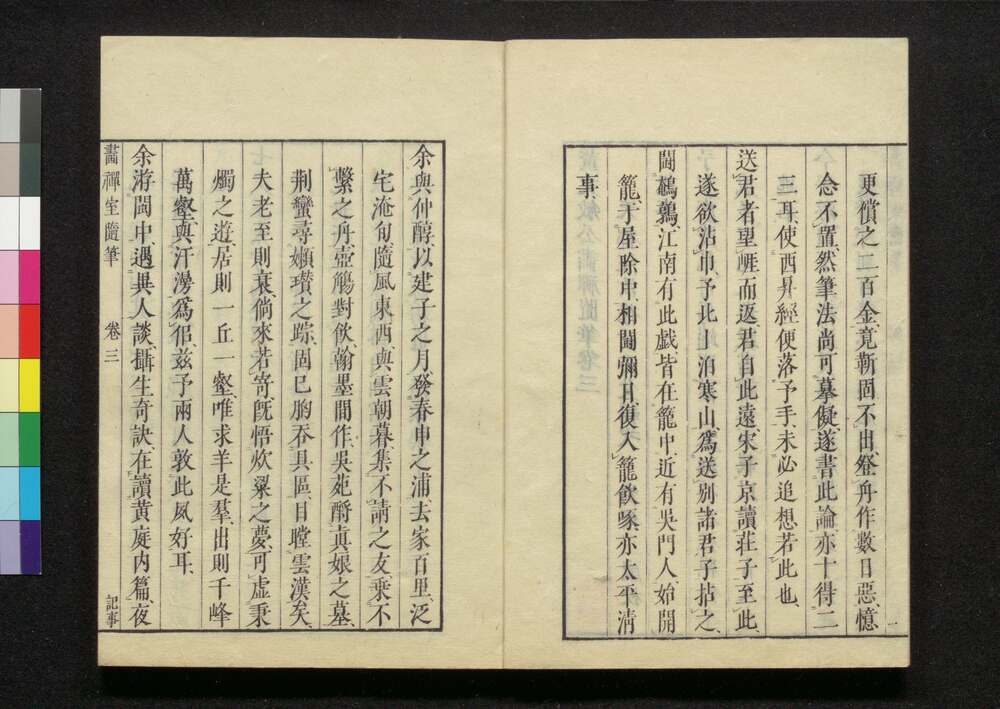 更償之二百金竟靳固不出登舟作數日惡憶
念不置然筆法尚可摹儗遂書此論亦十得二
三耳使西昇經便落予手未必追想若此也
送君者望崕而返君自此遠宋子京讀莊子至此
遂欲沾巾予北上泊寒山爲送別諸君子拈之
鬪鵪鶉江南有此戲皆在籠中近有吳門人始開
籠于屋除中相鬪彌日復入籠飲啄亦太平清
事
余與仲醇以建子之月發春申之浦去家百里泛
宅淹旬隨風東西與雲朝暮集不請之友乘不
繫之舟壺觴對飲翰墨間作吳苑酹眞娘之墓
荆蠻尋嬾瓚之踪固已胸吞具區目瞠雲漢矣
夫老至則衰倘來若寄旣悟炊粱之夢可虛秉
燭之遊居則一丘一壑唯求羊是羣出則千峰
萬壑與汗漫爲侶兹予兩人敦此夙好耳
余游閩中遇異人談攝生奇訣在讀黄庭内篇夜
畫禪室隨筆 卷三 記事